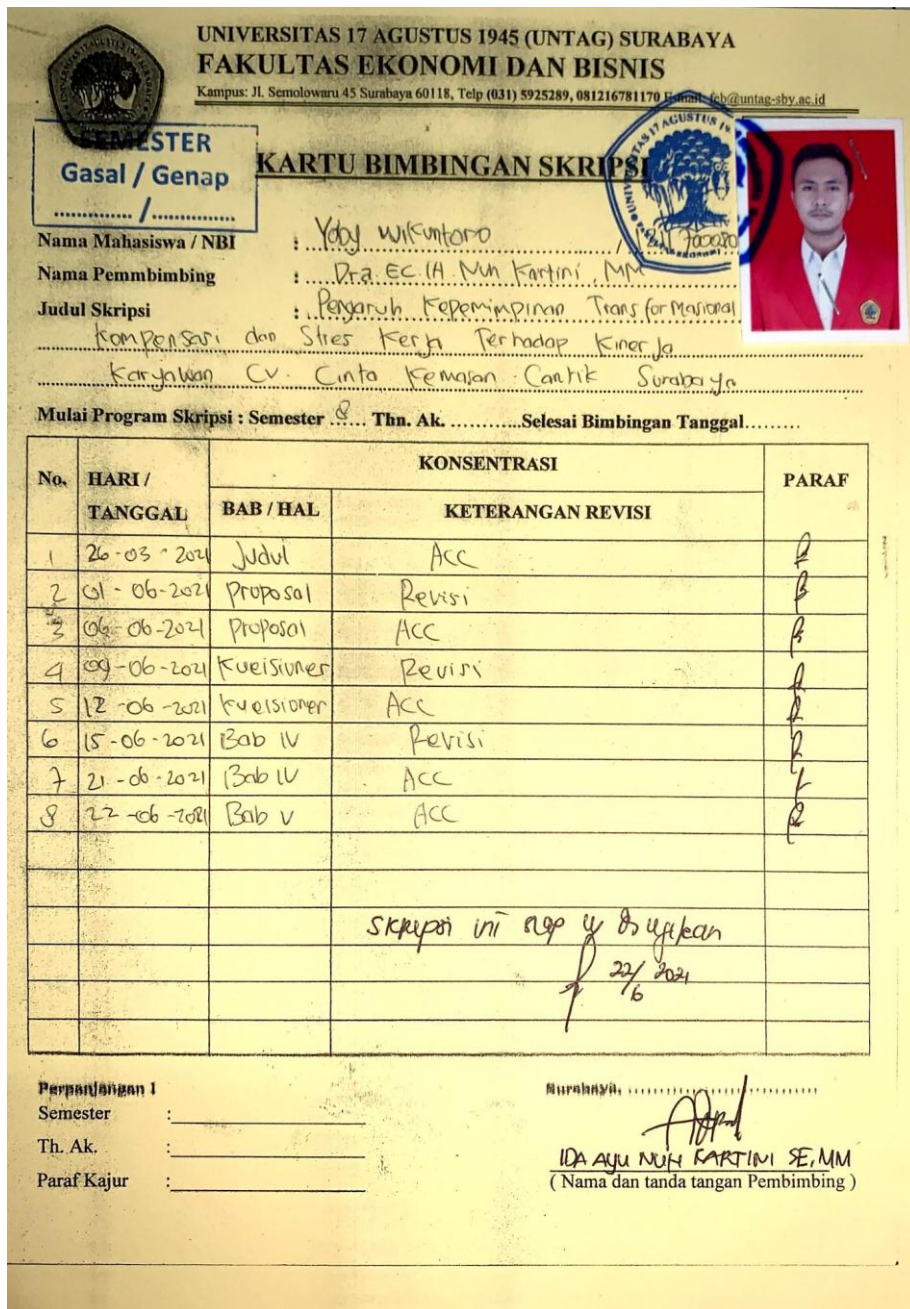 UNIVERSITAS 17 AGUSTUS 1945 (UNTAG) SURABAYA
FAKULTAS EKONOMI DAN BISNIS
Kampus: Jl. Semolowaru 45 Surabaya 60118, Telp (031) 5925289, 081216781170 E-mail: feb@untag-sby.ac.id
SEMESTER
Gasal / Genap
............. /...............
KARTU BIMBINGAN SKRIPSI
Nama Mahasiswa / NBI : Yoby Wikuntoro /
Nama Pemmbimbing : Dra. EC. IA Nuh Kartini, MM
Judul Skripsi : Pengaruh Kepemimpinan Transformasional
Kompensasi dan Stres Kerja Terhadap Kinerja
Karyawan CV. Cinta Kemasan Cantik Surabaya
Mulai Program Skripsi : Semester 8 Thn. Ak. ............Selesai Bimbingan Tanggal.........
No. HARI / TANGGAL KONSENTRASI PARAF
BAB / HAL KETERANGAN REVISI
1 26-03-2021 Judul Acc
2 01-06-2021 Proposal Revisi
3 06-06-2021 Proposal ACC
4 09-06-2021 Kueisiuner Revisi
5 12-06-2021 kueisioner ACC
6 15-06-2021 Bab IV Revisi
7 21-06-2021 Bab IV ACC
8 22-06-2021 Bab V ACC
Skripsi ini siap u/ diujikan
22/6 2021
Perpanjangan 1
Semester :
Th. Ak. :
Paraf Kajur :
Surabaya, ..............................
IDA AYU NUH KARTINI SE, MM
( Nama dan tanda tangan Pembimbing )